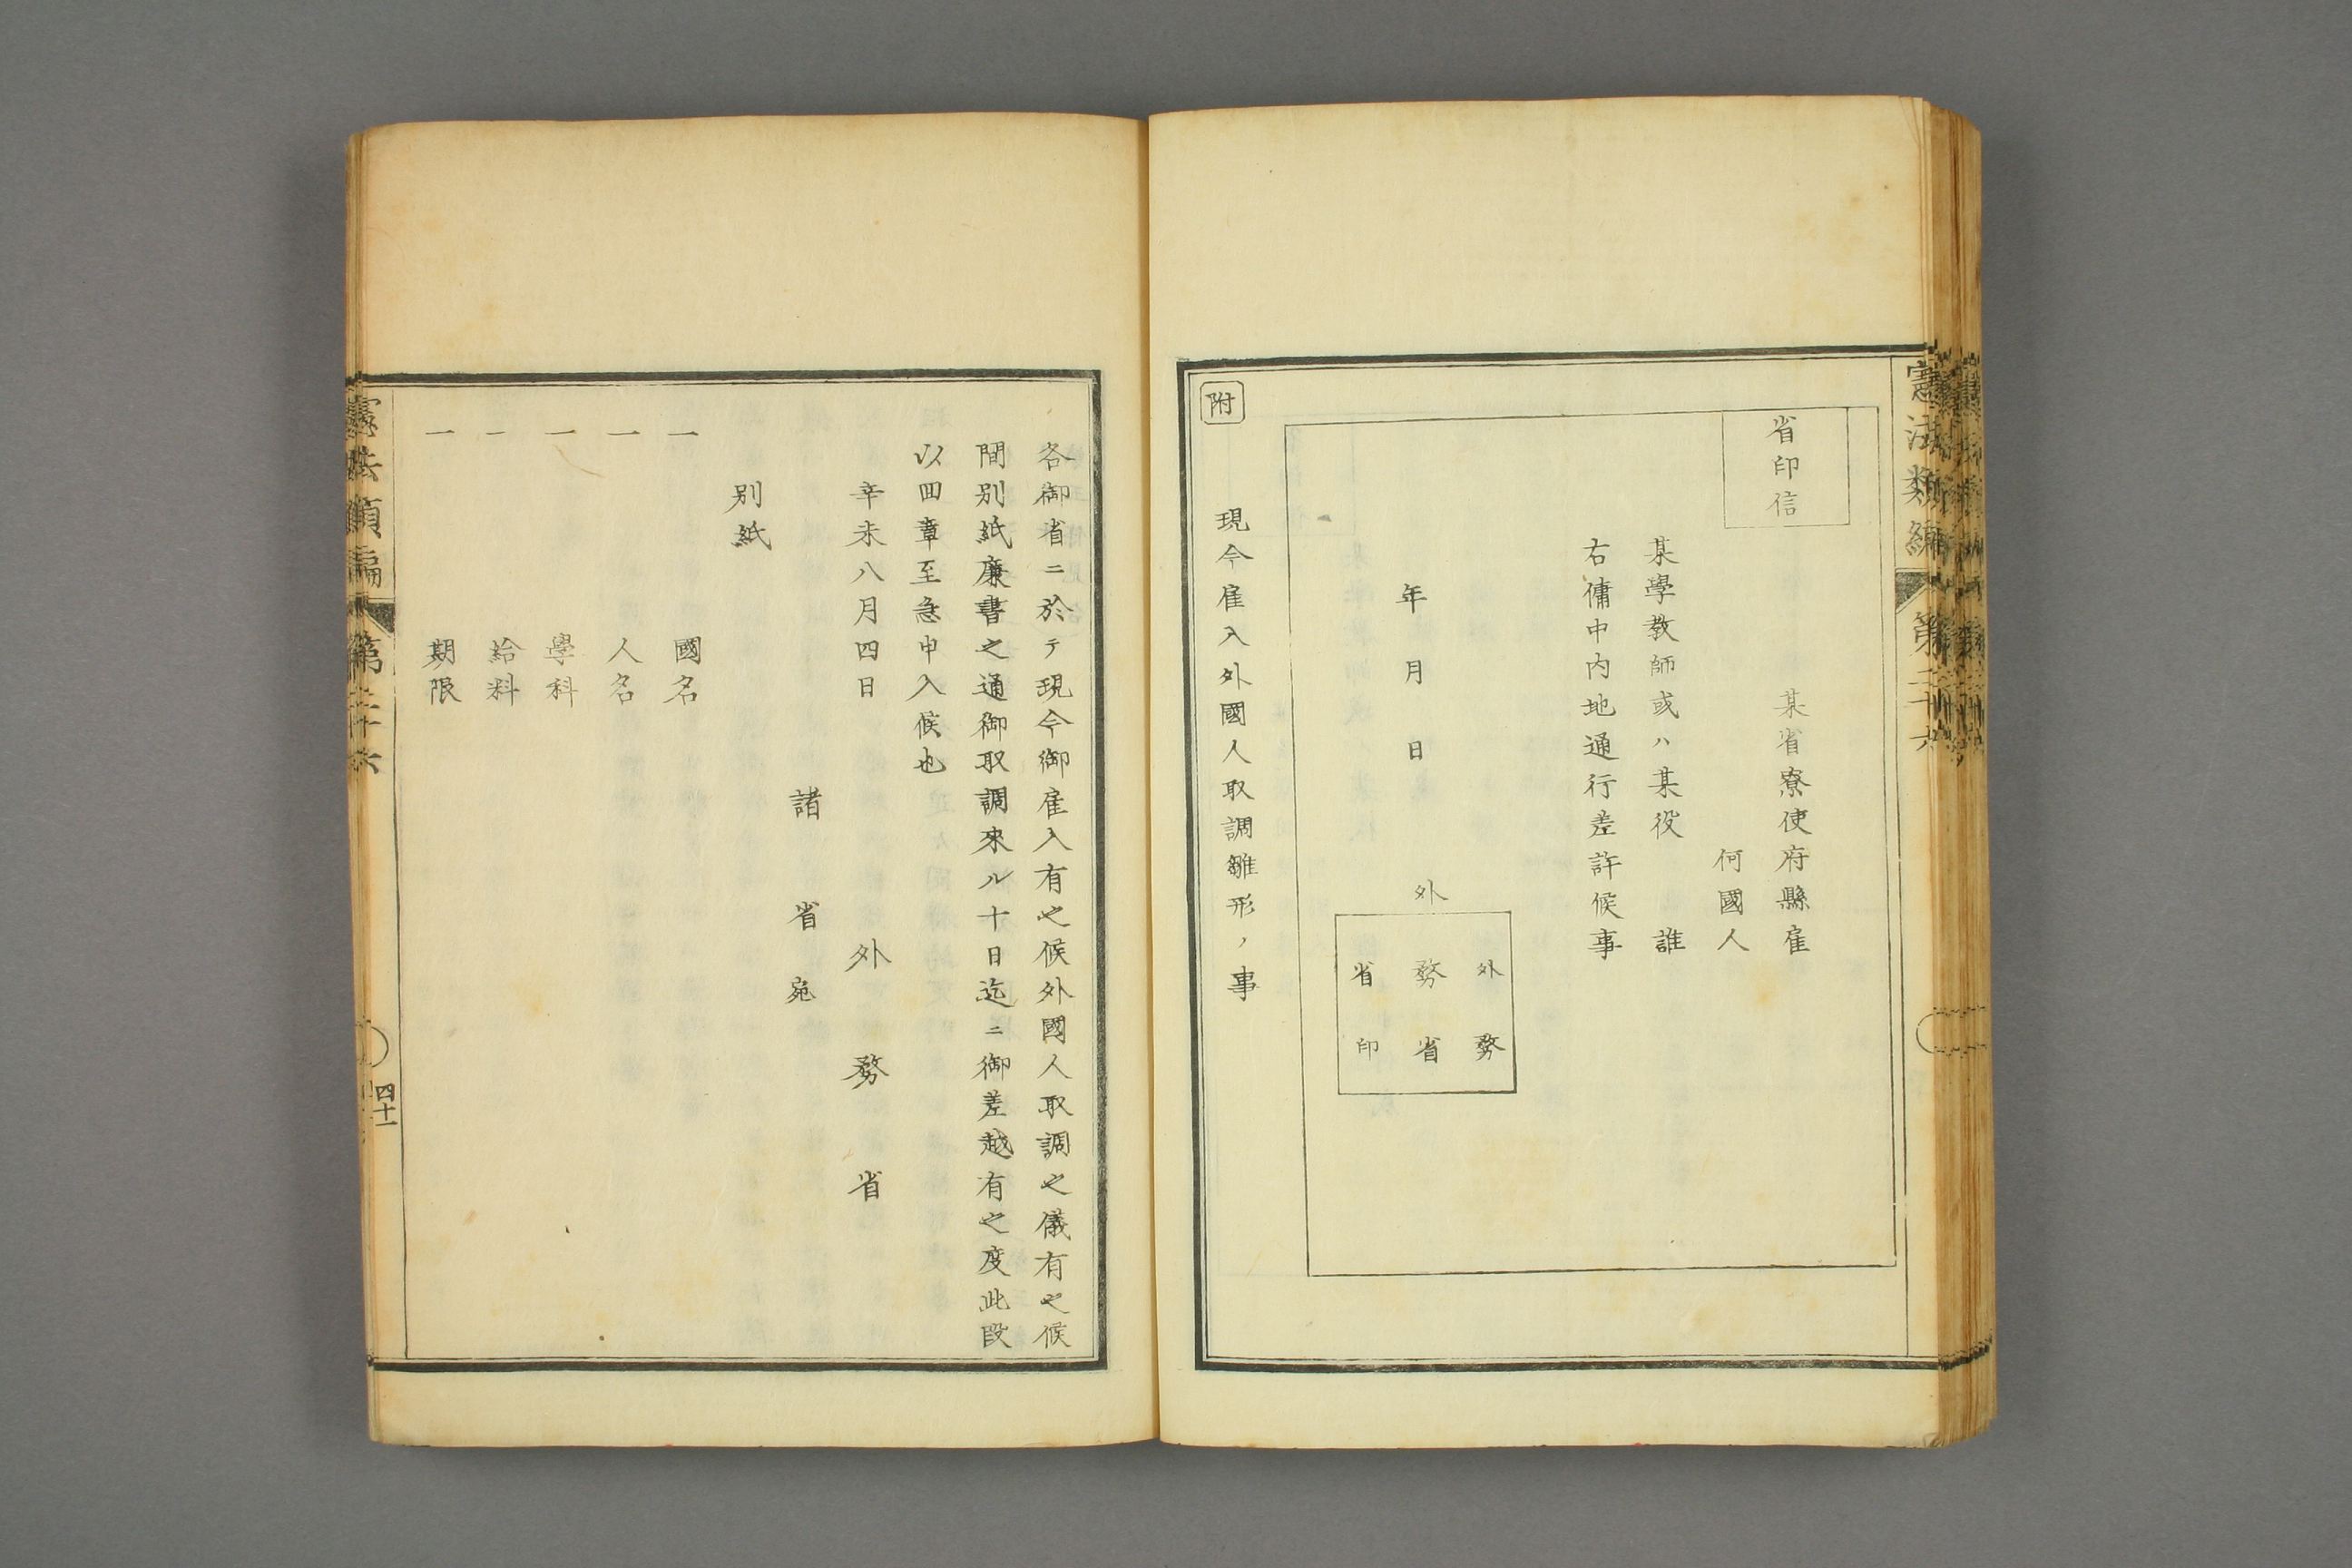 憲法類編 第二十六
省印信
某省寮使府縣雇
何國人
某學教師或ハ某役 誰
右傭中内地通行差許候事
年月日
外務省
外務
省印
附
現今雇入外國人取調雛形ノ事
各御省ニ於テ現今御雇入有之候外國人取調之儀有之候
間別紙廉書之通御取調來ル十日迄ニ御差越有之度此段
以回章至急申入候也
辛未八月四日 外務省
諸省宛
別紙
一 國名
一 人名
一 學科
一 給料
一 期限
憲法類編 第二十六
四十一